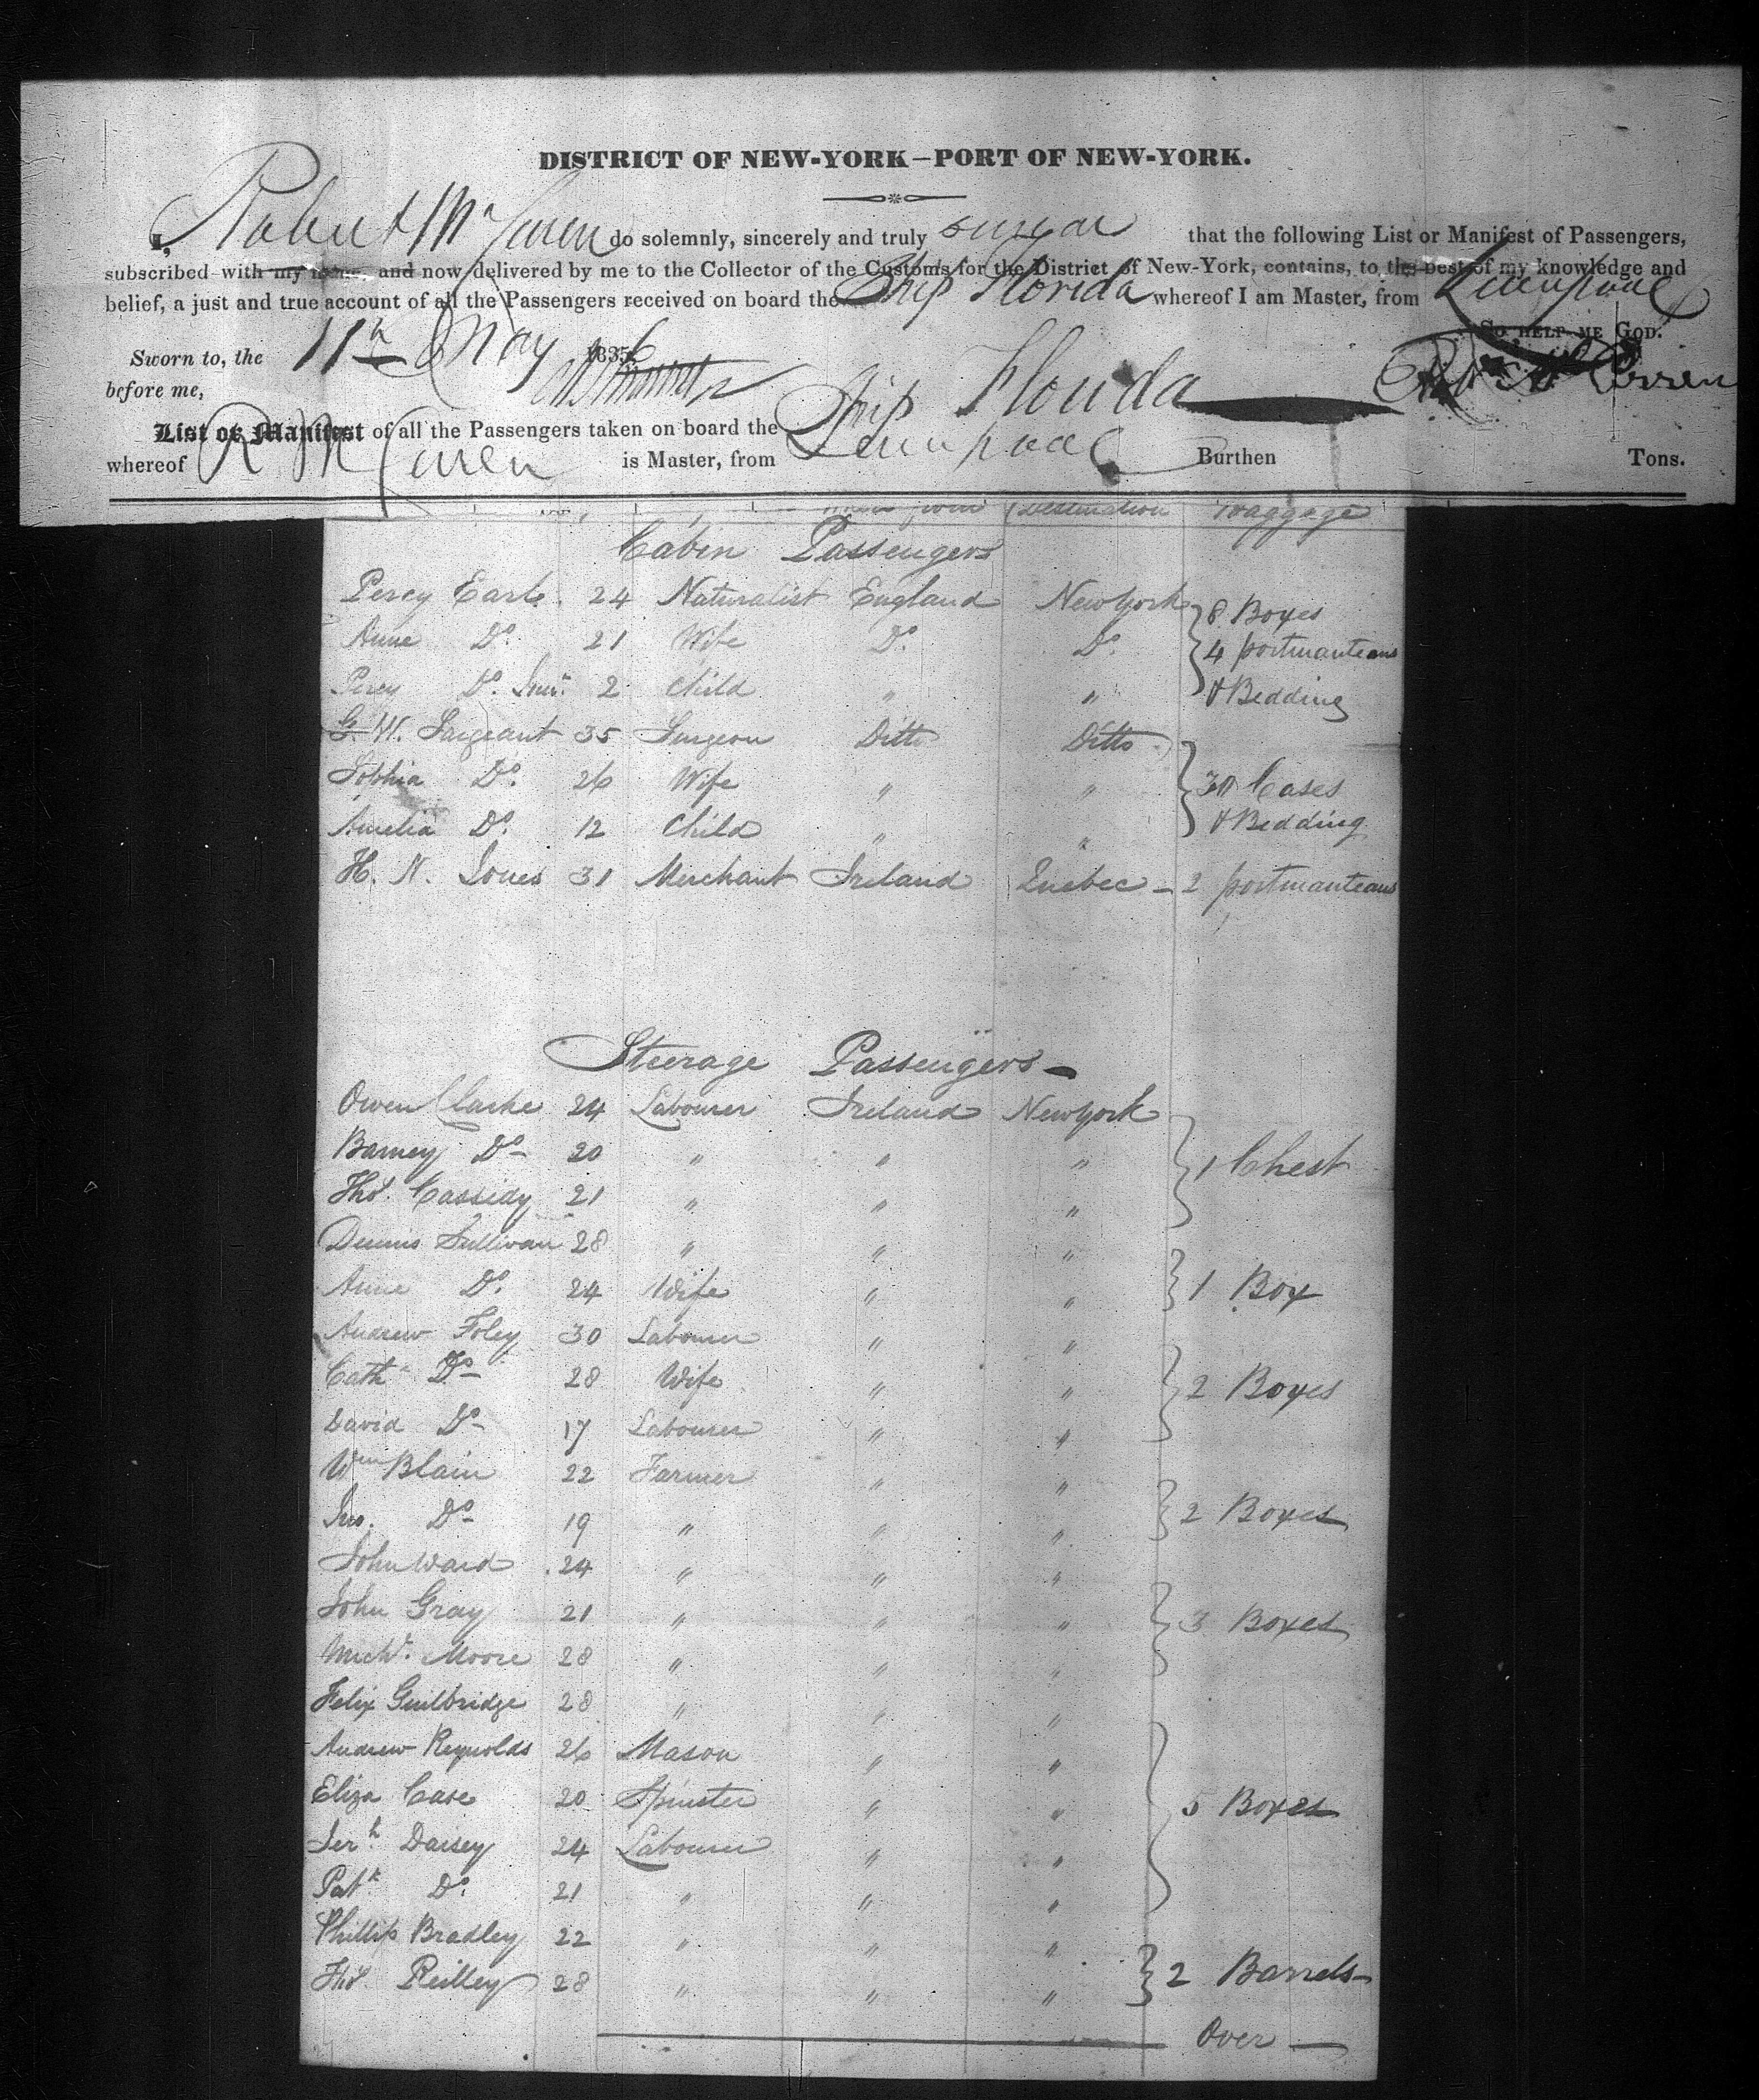 DISTRICT OF NEW-YORK—PORT OF NEW-YORK.
I, Robert Mc do solemnly, sincerely and truly swear that the following List or Manifest of Passengers,
subscribed with my name, and now delivered by me to the Collector of the Customs for the District of New-York, contains, to the best of my knowledge and
belief, a just and true account of all the Passengers received on board the Ship Florida whereof I am Master, from Liverpool
SO HELP ME GOD.
Sworn to, the 11th May 1836
before me,
List or Manifest of all the Passengers taken on board the Ship Florida
whereof R Mc is Master, from Liverpool Burthen Tons.
AGE, from Destination Baggage
Cabin Passengers
Percy Earle. 24 Naturalist England New York 8 Boxes
Anne Do. 21 Wife Do. Do. 4 portmanteaus
Percy Do. Junr. 2 Child " " & Bedding
G. W. Sargeant 35 Surgeon Ditto Ditto
Sophia Do. 26 Wife " " 30 Cases
Amelia Do. 12 Child " " & Bedding
H. N. Jones 31 Merchant Ireland Quebec - 2 portmanteaus
Steerage Passengers
Owen Clarke 24 Labourer Ireland New York
Barney Do 20 " " " 1 Chest
Thos. Cassidy 21 " " "
Dennis Sullivan 28 " " "
Anne Do. 24 Wife " " 1 Box
Andrew Foley 30 Labourer " "
Cath Do 28 Wife " " 2 Boxes
David Do 17 Labourer " "
Wm Blain 22 Farmer " "
Jno. Do 19 " " " 2 Boxes
John Ward 24 " " "
John Gray 21 " " " 3 Boxes
Michl. Moore 28 " " "
Felix Guilbridge 28 " " "
Andrew Reynolds 26 Mason " "
Eliza Case 20 Spinster " " 5 Boxes
Jerh Daisey 24 Labourer " "
Patk Do. 21 " " "
Phillip Bradley 22 " " "
Thos. Reilley 28 " " " 2 Barrels
Over